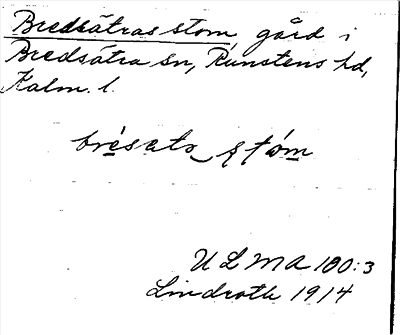 Bredsätras stom, gård i
Bredsätra sn, Runstens hd,
Kalm. l.
ULMA 180:3
Lindroth 1914